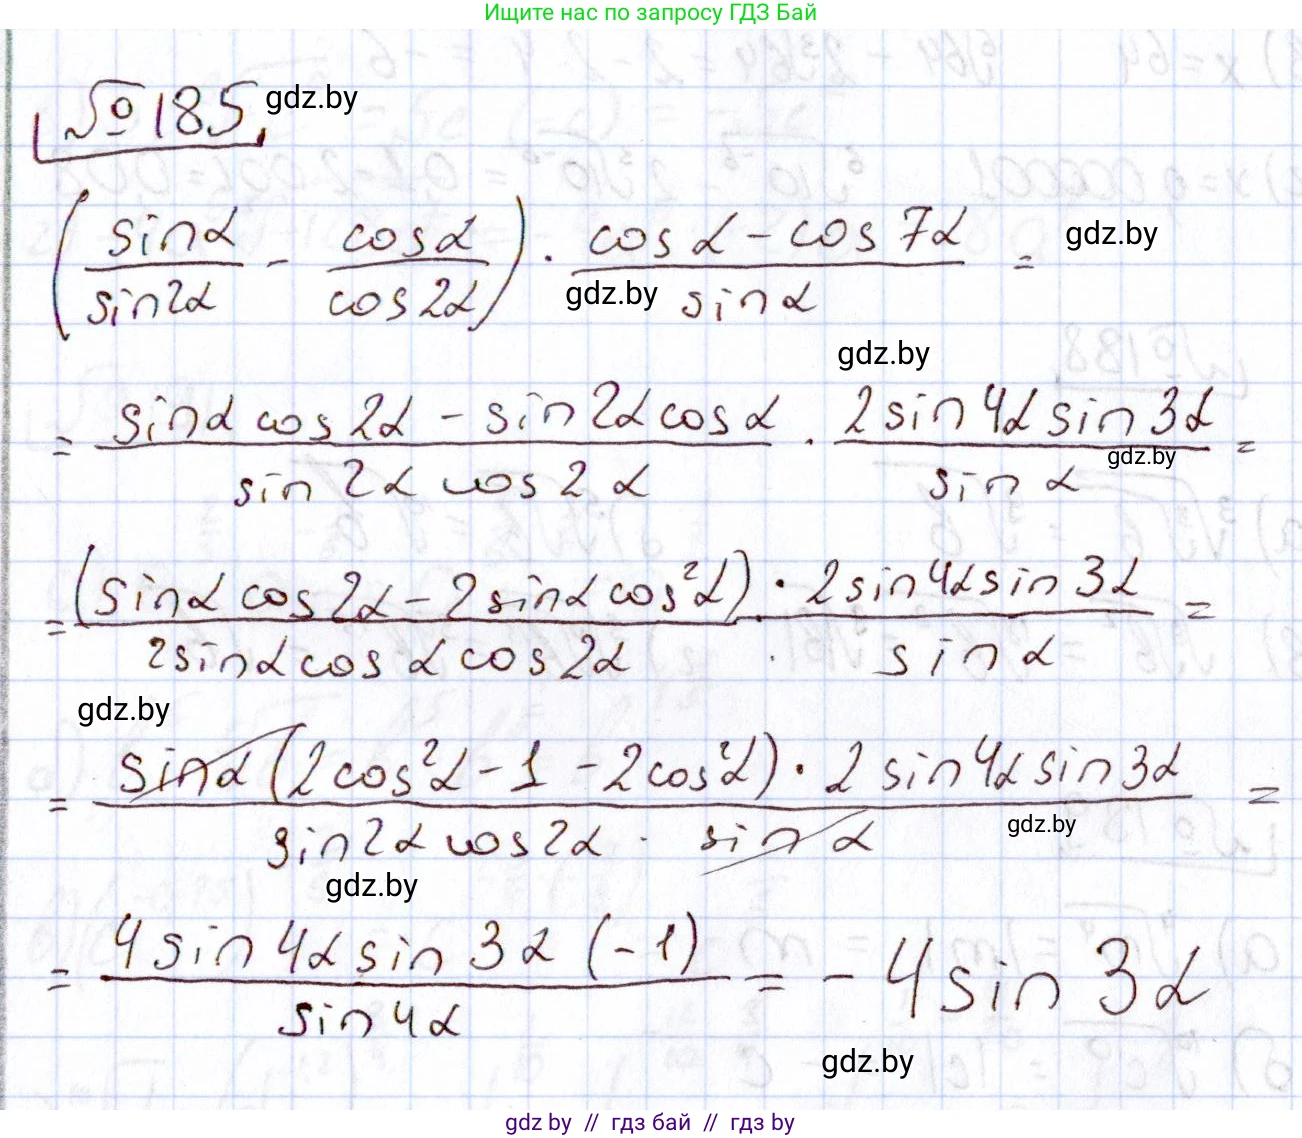 Ищите нас по запросу ГДЗ Бай
№185. gdz.by
(sinα/sin2α - cosα/cos2α) · (cosα - cos7α)/sinα = gdz.by
gdz.by
gdz.by
= (sinα cos2α - sin2α cosα)/(sin2α cos2α) · (2sin4α sin3α)/sinα =
gdz.by
= (sinα cos2α - 2sinα cos²α)/(2sinα cosα cos2α) · (2sin4α sin3α)/sinα =
gdz.by
= (sinα (2cos²α - 1 - 2cos²α) · 2sin4α sin3α)/(sin2α cos2α · sinα) =
gdz.by
gdz.by
= (4sin4α sin3α (-1))/sin4α = -4sin3α
gdz.by
gdz by // гдз бай // гдз by